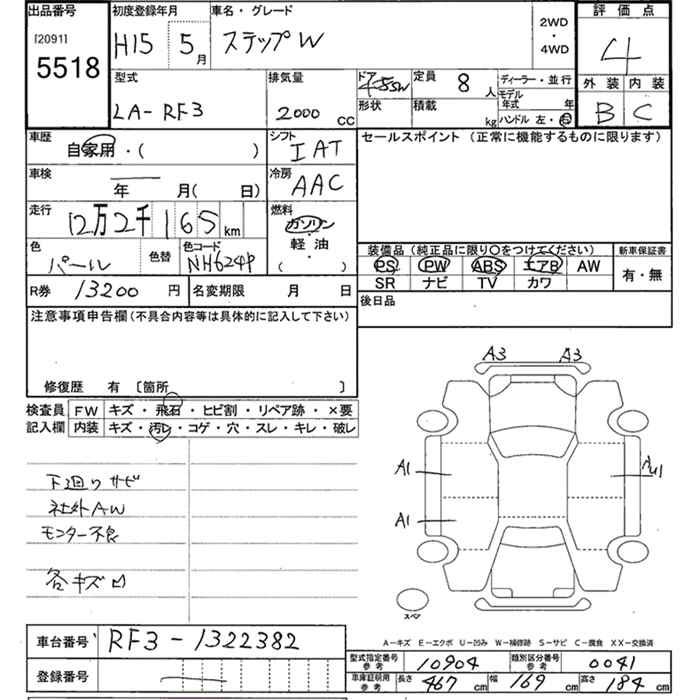 出品番号
[2091]
5518
初度登録年月
H15 5月
車名・グレード
ステップW
2WD
・
4WD
評価点
4
外装 内装
B C
型式
LA-RF3
排気量
2000 CC
ドア
形状
定員 8 人
積載 kg
ディーラー・並行
モデル
年式 年
ハンドル 左・右
車歴
自家用・( )
シフト
I AT
セールスポイント (正常に機能するものに限ります)
車検
年 月( 日)
冷房
AAC
走行
12万2千165km
燃料
ガソリン
・
軽油
( )
色
パール
色替
色コード
NH624P
装備品(純正品に限り○をつけてください)
PS PW ABS エアB AW
SR ナビ TV カワ
新車保証書
有・無
R券 13200 円
名変期限 月 日
後日品
注意事項申告欄(不具合内容等は具体的に記入して下さい)
修復歴 有 〔箇所 〕
検査員 FW キズ・飛石・ヒビ割・リペア跡・×要
記入欄 内装 キズ・汚レ・コゲ・穴・スレ・キレ・破レ
下廻りサビ
社外AW
モニター不良
各キズ凹
A3 A3
A1
A1
スペア
車台番号 RF3-1322382
登録番号
A-キズ E-エクボ U-凹み W-補修跡 S-サビ C-腐食 XX-交換済
型式指定番号
参考
10904
類別区分番号
参考
0041
車庫証明用
参考
長さ 467 cm 幅 169 cm 高さ 184 cm